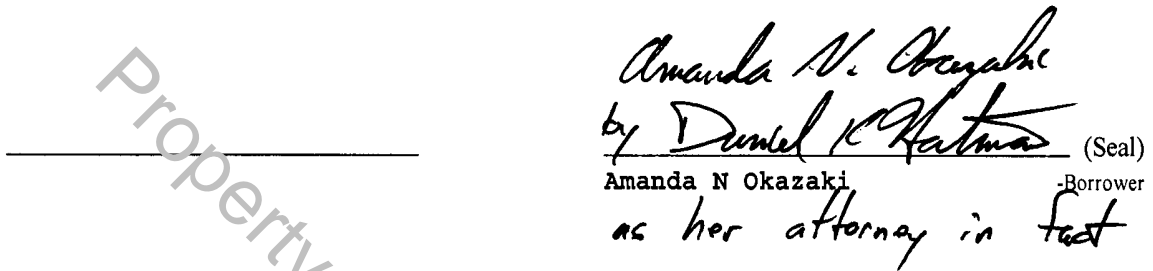 Property
Amanda N. Okazaki
by Daniel K
(Seal)
Amanda N Okazaki
-Borrower
as her attorney in fact